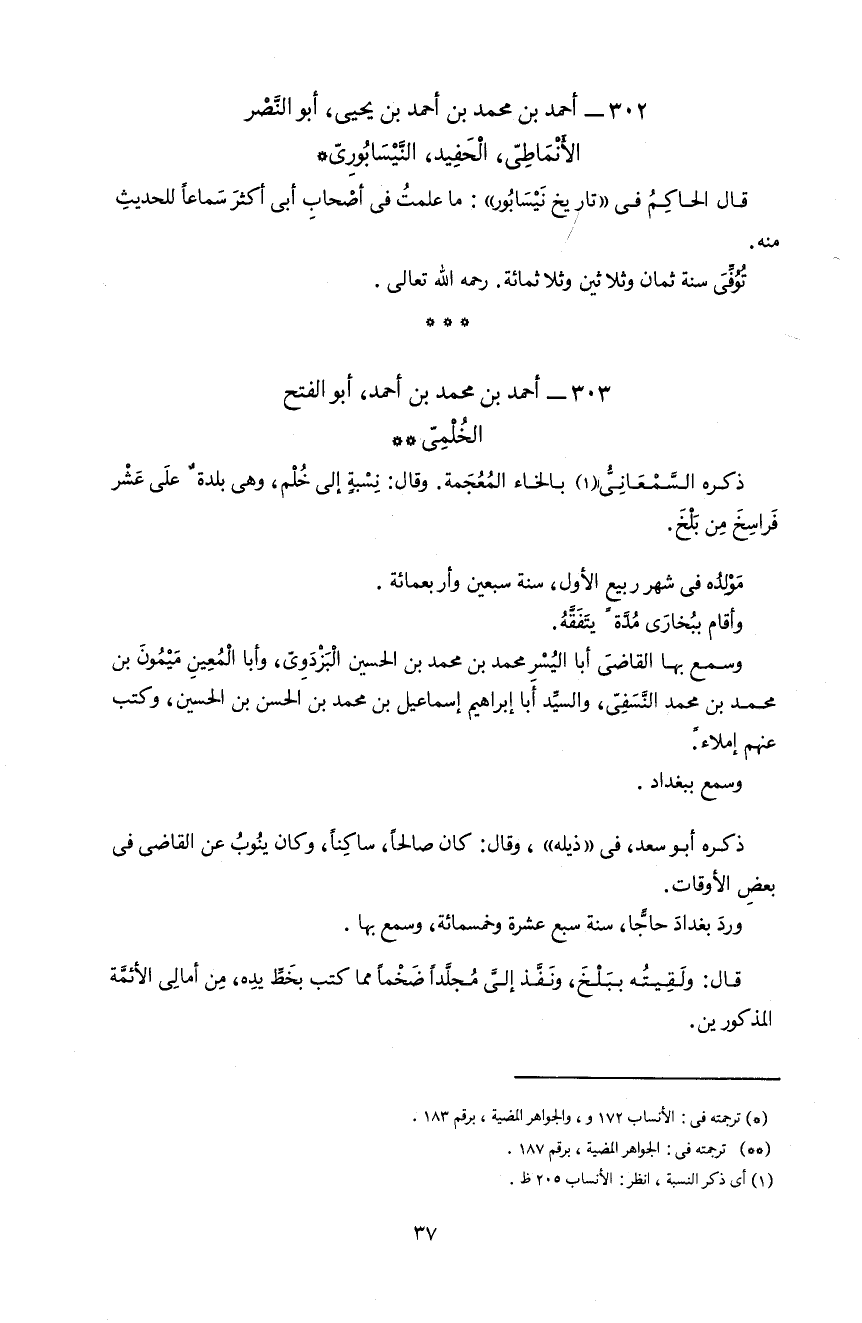 ٣٠٢ ــ أحمد بن محمد بن أحمد بن يحيى، أبو النَّصْر
الأَنْمَاطِىّ، الْحَفِيد، النَّيْسَابُورِىّ*
قال الحاكِمُ فى «تاريخ نَيْسَابُور» : ما علمتُ فى أصْحابِ أبى أكثرَ سَماعاً للحديثِ
منه.
تُوُفِّىَ سنة ثمان وثلاثين وثلاثمائة. رحمه الله تعالى .
* * *
٣٠٣ ــ أحمد بن محمد بن أحمد، أبو الفتح
الخُلْمِىّ **
ذكره السَّمْعَانِىُّ(١) بالخاء المُعْجَمة. وقال: نِسْبةٍ إلى خُلْم، وهى بلدة ٌ علَى عَشْر
فَراسِخَ مِن بَلْخَ.
مَوْلِدُه فى شهر ربيع الأول، سنة سبعين وأربعمائة .
وأقام ببُخارَى مُدَّة ً يتَفَقَّهُ.
وسمع بها القاضىَ أبا اليُسْرِ محمد بن محمد بن الحسين الْبَزْدَوِىّ، وأبا الْمُعِينِ مَيْمُونَ بن
محمد بن محمد النَّسَفِىّ، والسيِّد أبا إبراهيم إسماعيل بن محمد بن الحسن بن الحسين، وكتب
عنهم إملاء ً.
وسمع ببغداد .
ذكره أبو سعد، فى «ذيله» ، وقال: كان صالحاً، ساكِناً، وكان ينُوبُ عن القاضى فى
بعضِ الأوقات.
وردَ بغدادَ حاجًّا، سنة سبع عشرة وخمسمائة، وسمع بها .
قال: ولَقِيتُه ببَلْخَ، ونَفَّذ إلىَّ مُجلَّداً ضَخْماً مما كتب بخَطِّ يدِه، مِن أمالِى الأئمَّة
المذكورين.
(*) ترجمته فى : الأنساب ١٧٢ و ، والجواهر المضية ، برقم ١٨٣ .
(**) ترجمته فى : الجواهر المضية ، برقم ١٨٧ .
(١) أى ذكر النسبة ، انظر : الأنساب ٢٠٥ ظ .
٣٧